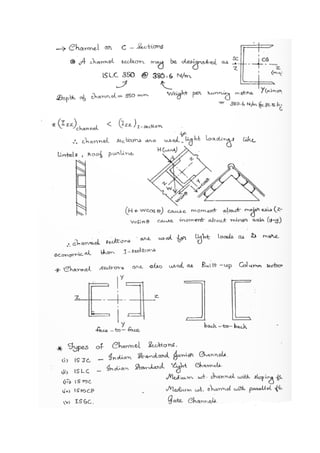 → Channel or C - Sections
⊛ A channel section may be designated as
SC CG
Z Z
(major)
ISLC 350 @ 380.6 N/m
Y (minor)
Depth of channel = 350 mm Weight per running metre
= 380.6 N/m
* (Izz)channel < (Izz)I-section
∴ channel sections are used for light loadings like
lintels, roof purlins.
H (wind)
W
Y
(H + W cos θ) cause moment about major axis (z-
W sin θ cause moment about minor axis (y-y)
∴ channel sections are used for light loads as Iz more
economical than I-sections
* Channel sections are also used as Built-up Column section
Y
Z Z
Y
face-to-face back-to-back
* Types of Channel Sections.
(i) ISJC - Indian Standard Junior Channels
(ii) ISLC - Indian Standard Light Channels
(iii) ISMC Medium wt. channel with sloping fl
(iv) ISMCP Medium wt. channel with parallel fl
(v) ISGC. Gate Channels.